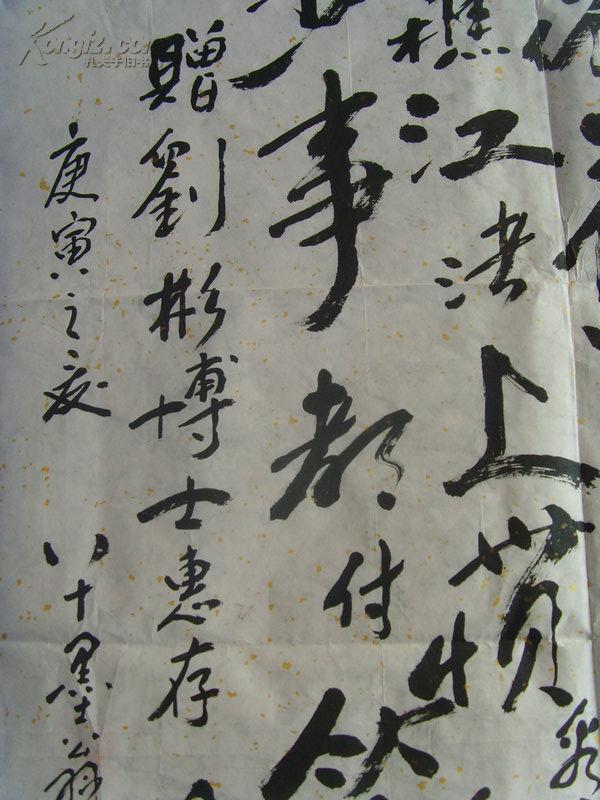 樵江渚上慣
少事都付笑
贈劉彬博士惠存
庚寅之夏 八十墨翁
Kongfz.com
孔夫子旧书